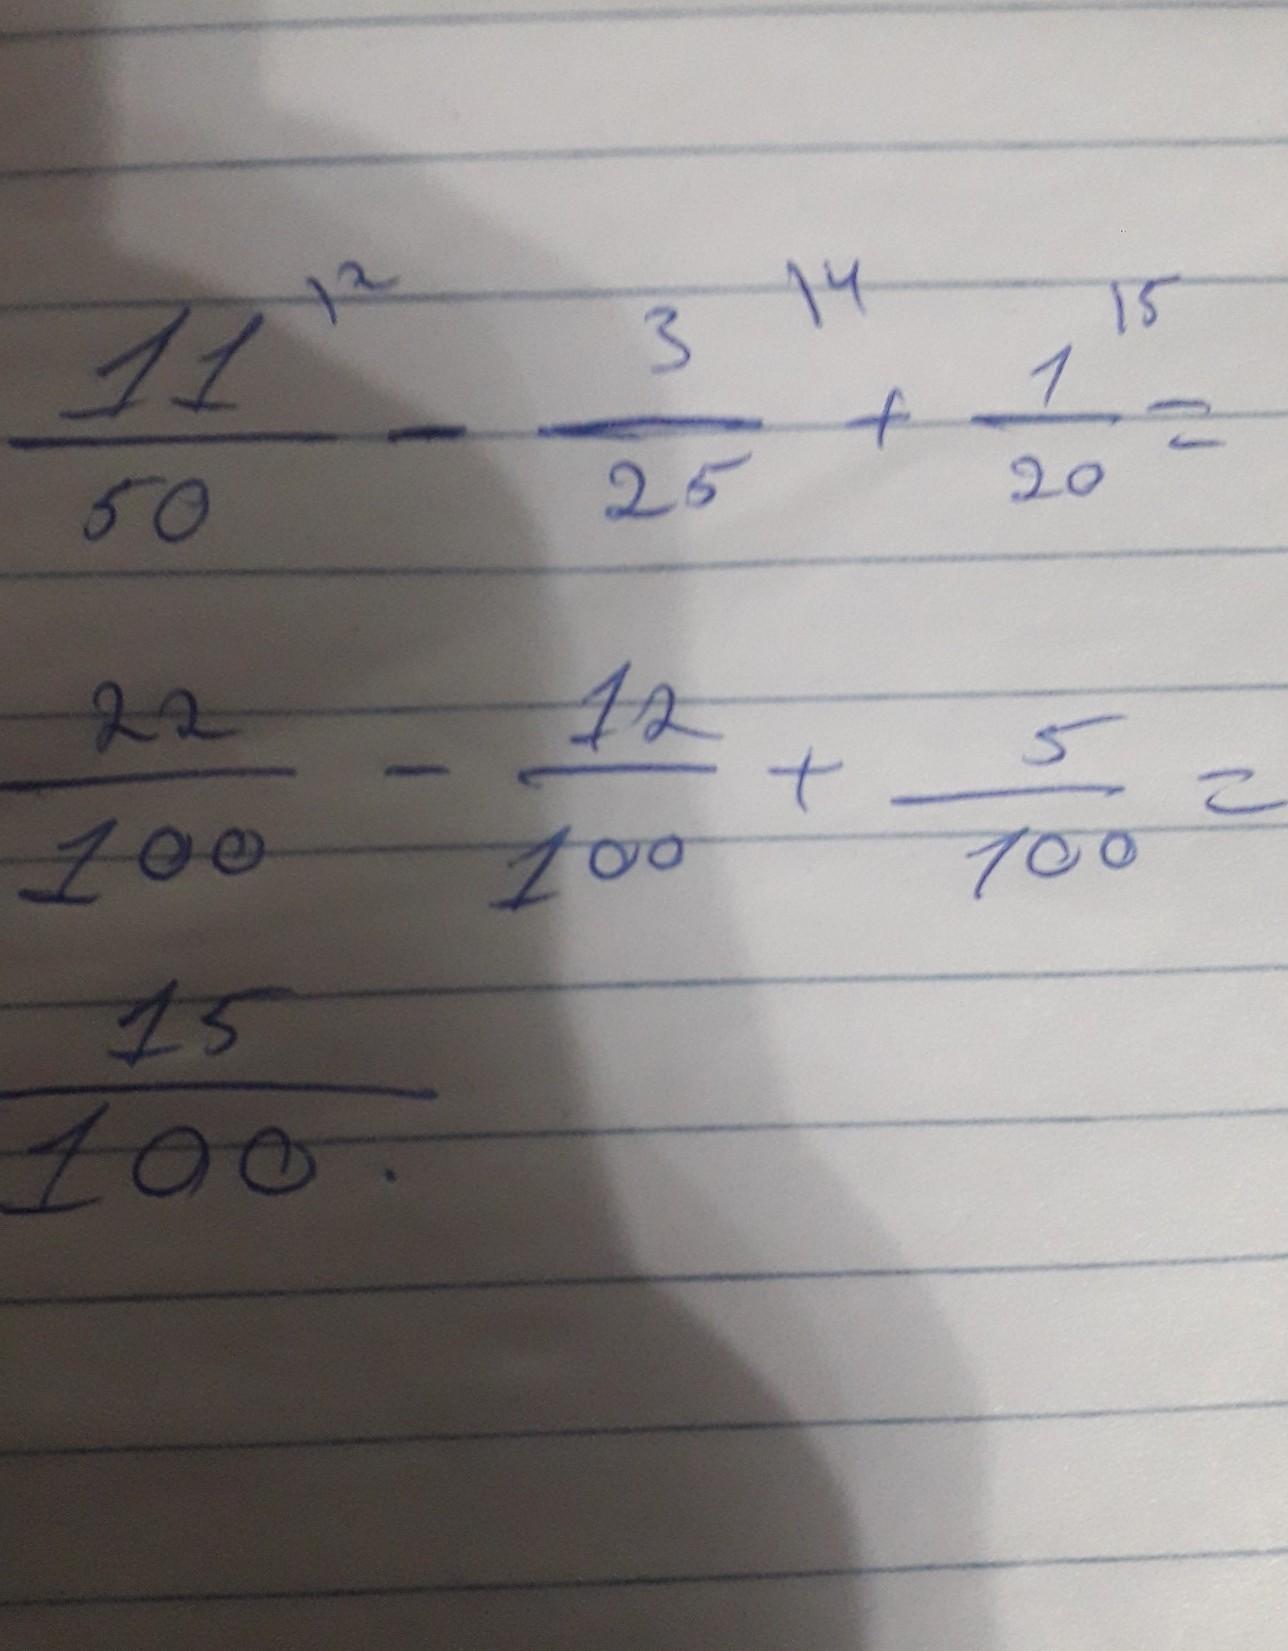 11/50 \2 - 3/25 \4 + 1/20 \5 =
22/100 - 12/100 + 5/100 =
15/100.